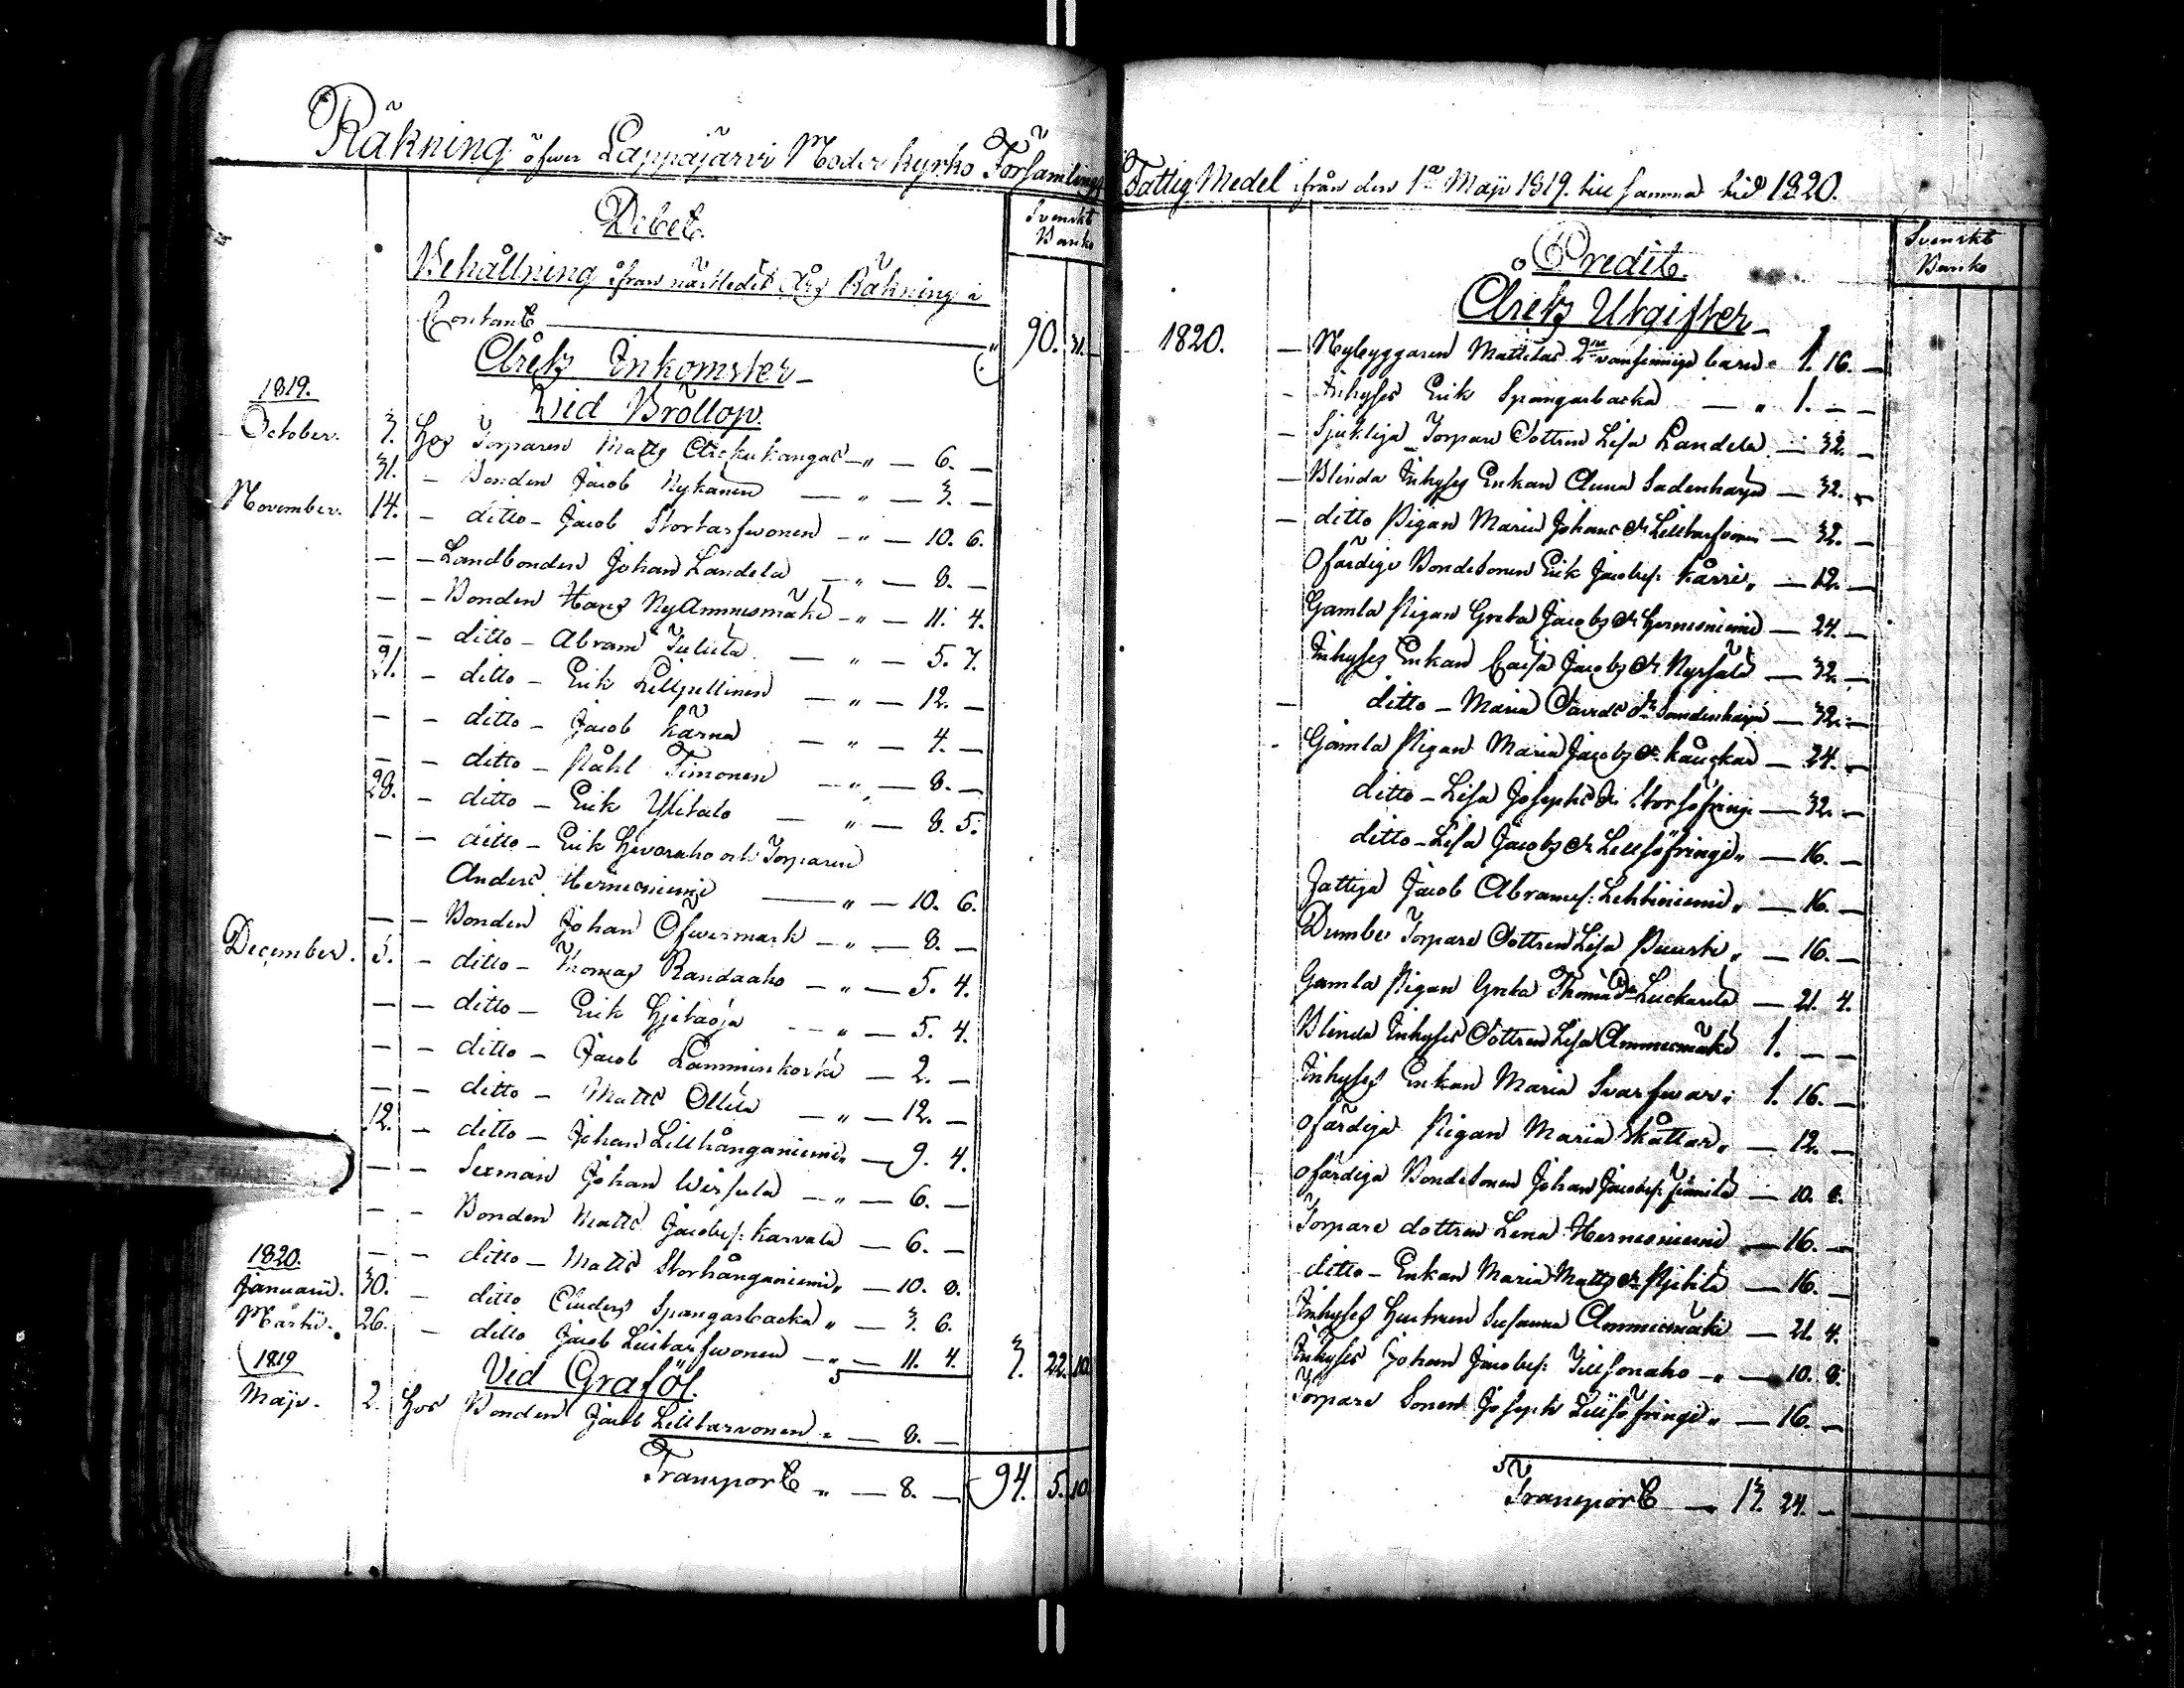 Räkning öfwer Lappajärvi Moderkyrko Församlings
Debet.
Svenskt Banko
Behållning ifrån nästledet Års Räkning i
Contant — " 90. 31. —
Årets Inkomster —
Vid Bröllop.
1819.
October. 3. Hos Torparen Matts Kangas — " — 6. —
31. — Bonden Jacob Nykänen — " — 3. —
November. 14. — ditto — Jacob Storkarfwonen — " — 10. 6.
— — Landbonden Johan Landela — " — 8. —
— — Bonden Hans NyAmmesmäki — " — 11. 4.
— — ditto — Abram — " — 5. 7.
21. — ditto — Erik Lillpeltinen — " — 12. —
— — ditto — Jacob Kärna — " — 4. —
— — ditto — Påhl Timonen — " — 8. —
28. — ditto — Erik Ylitalo — " — 8. 5.
— — ditto — Erik och Torparen
Anders Hernesniemi — " — 10. 6.
— — Bonden Johan Öfwermark — " — 8. —
December. 5. — ditto — Thomas Randaaho — " — 5. 4.
— — ditto — Erik Hjetaoja — " — 5. 4.
— — ditto — Jacob Lamminkoski — 2. —
— — ditto — Matts Ollila — " — 12. —
12. — ditto — Johan Lillhånganiemi " — 9. 4.
— — Sexman Johan Wirsula — " — 6. —
— — Bonden Matts Jacobsf: Karvala — 6. —
— — ditto — Matts Storhånganiemi " — 10. 8.
1820.
Januarii. 30. — ditto Anders Spangarbacka " — 3. 6.
Martii. 26. — ditto Jacob — " — 11. 4. 3. 22. 10.
1819
Vid Graföl.
Maji. 2. Hos Bonden Jacob Lillkarvonen " — 8. —
Transport " — 8. — 94. 5. 10.
Fattig Medel ifrån den 1a Maji 1819. till samma tid 1820.
Credit.
Svenskt Banko
Årets Utgifter —
1820. — Nybyggaren Mattilas 2ne vansinniga barn " 1. 16. —
— Inhyses Erik Spangarbacka — " 1. — —
— Sjukliga Torpare Dottren Lisa Landela — 32. —
— Blinda Inhyses Enkan Anna Sadenharju — 32. —
— ditto Pigan Maria Johans dr — 32. —
Ofärdige Bondesonen Erik Jacobsf: Kärri " — 12. —
Gamla Pigan Greta Jacobs dr Hernesniemi — 24. —
Inhyses Enkan Caisa Jacobs dr — 32. —
— ditto — Maria Davids dr — 32. —
Gamla Pigan Maria Jacobs dr — 24. —
ditto — Lisa Josephs dr — 32. —
ditto — Lisa Jacobs dr " — 16. —
Fattiga Jacob Abramsf: Lehtiniemi " — 16. —
Dumbe Torpare Dottren Lisa " — 16. —
Gamla Pigan Greta Thomas dr — 21. 4.
Blinda Inhyses Dottren Lisa Ammesmäki 1. — —
Inhyses Enkan Maria Svarfwar " 1. 16. —
Ofärdiga Pigan Maria Skåttar " — 12. —
Ofärdiga Bondesonen Johan Jacobsf: — 10. 8.
Torpare dottren Lena Hernesniemi " — 16. —
ditto — Enkan Maria Matts dr — 16. —
Inhyses Hustrun Susanna Ammesmäki — 21. 4.
Inhyses Johan Jacobsf: — " — 10. 8.
Torpare Sonen Joseph " — 16. —
Transport — " 13. 24. —